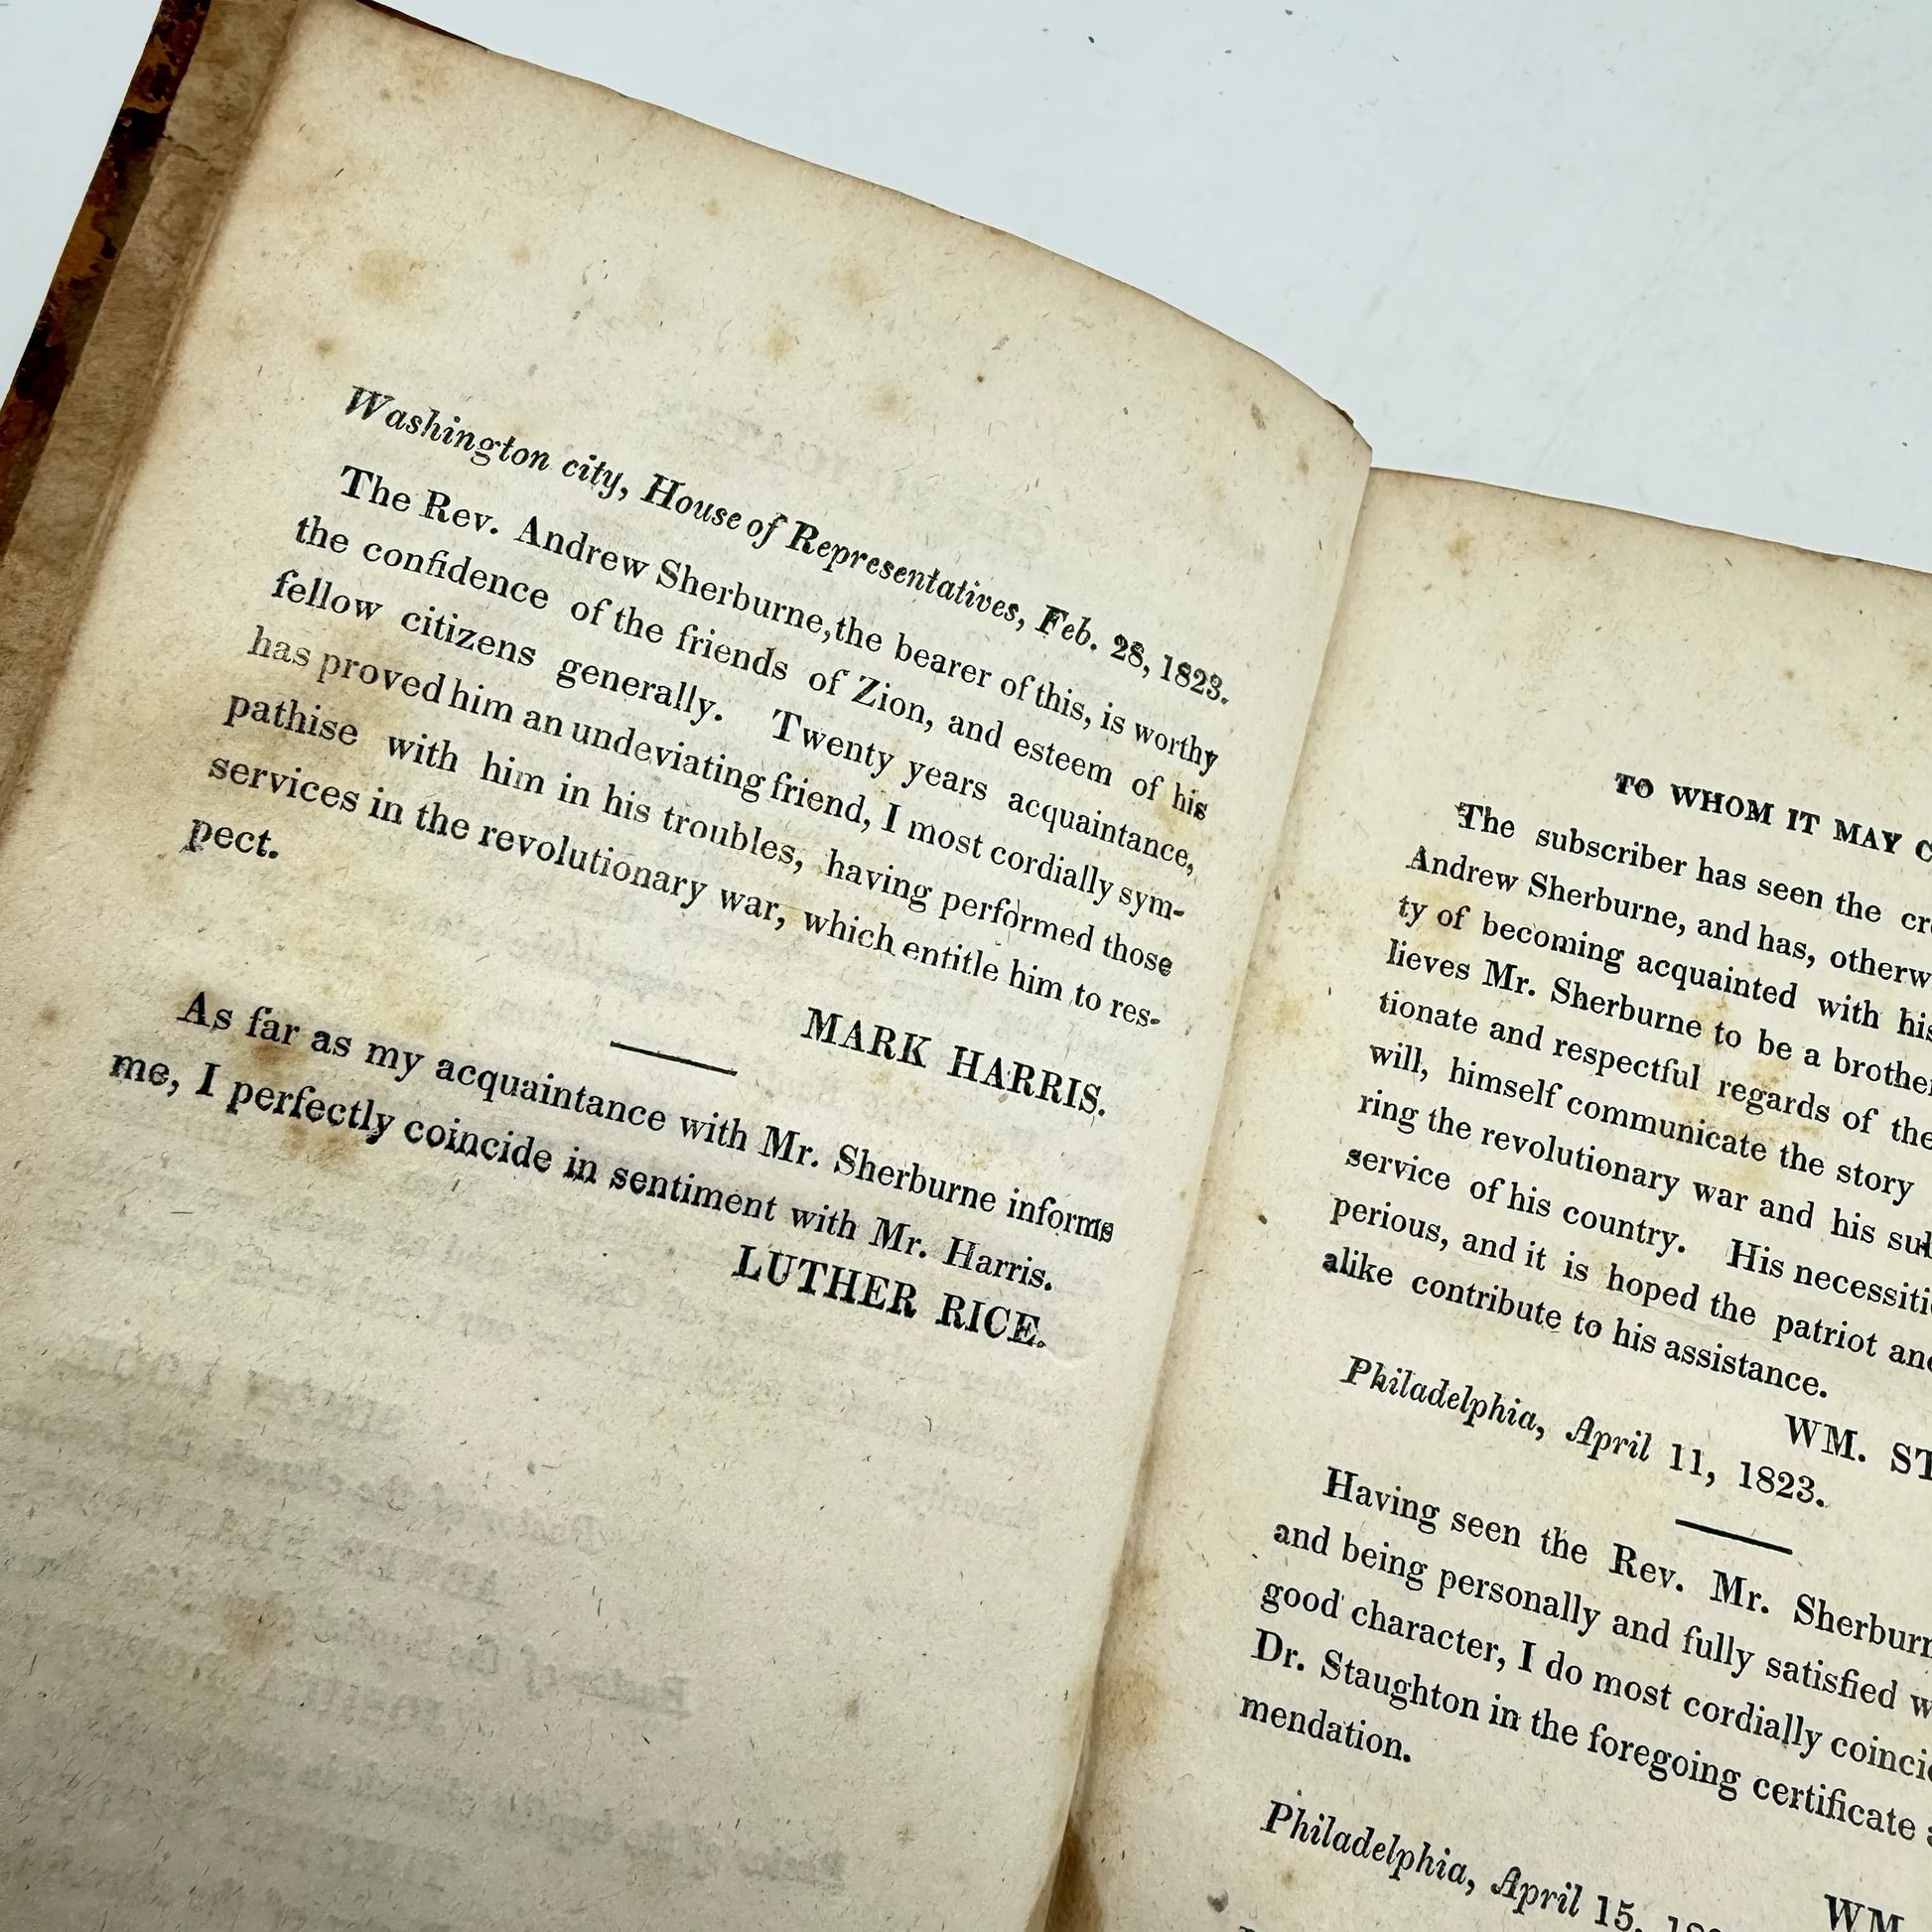 Washington city, House of Representatives, Feb. 28, 1823.
The Rev. Andrew Sherburne, the bearer of this, is worthy
the confidence of the friends of Zion, and esteem of his
fellow citizens generally. Twenty years acquaintance,
has proved him an undeviating friend, I most cordially sym-
pathise with him in his troubles, having performed those
services in the revolutionary war, which entitle him to res-
pect.
MARK HARRIS.
As far as my acquaintance with Mr. Sherburne informs
me, I perfectly coincide in sentiment with Mr. Harris.
LUTHER RICE.
TO WHOM IT MAY
The subscriber has seen the
Andrew Sherburne, and has,
ty of becoming acquainted with his
lieves Mr. Sherburne to be a
tionate and respectful regards of the
will, himself communicate the story
ring the revolutionary war and his
service of his country. His
perious, and it is hoped the patriot
alike contribute to his assistance.
WM.
Philadelphia, April 11, 1823.
Having seen the Rev. Mr.
and being personally and fully satisfied
good character, I do most cordially
Dr. Staughton in the foregoing certificate
mendation.
WM.
Philadelphia, April 15,